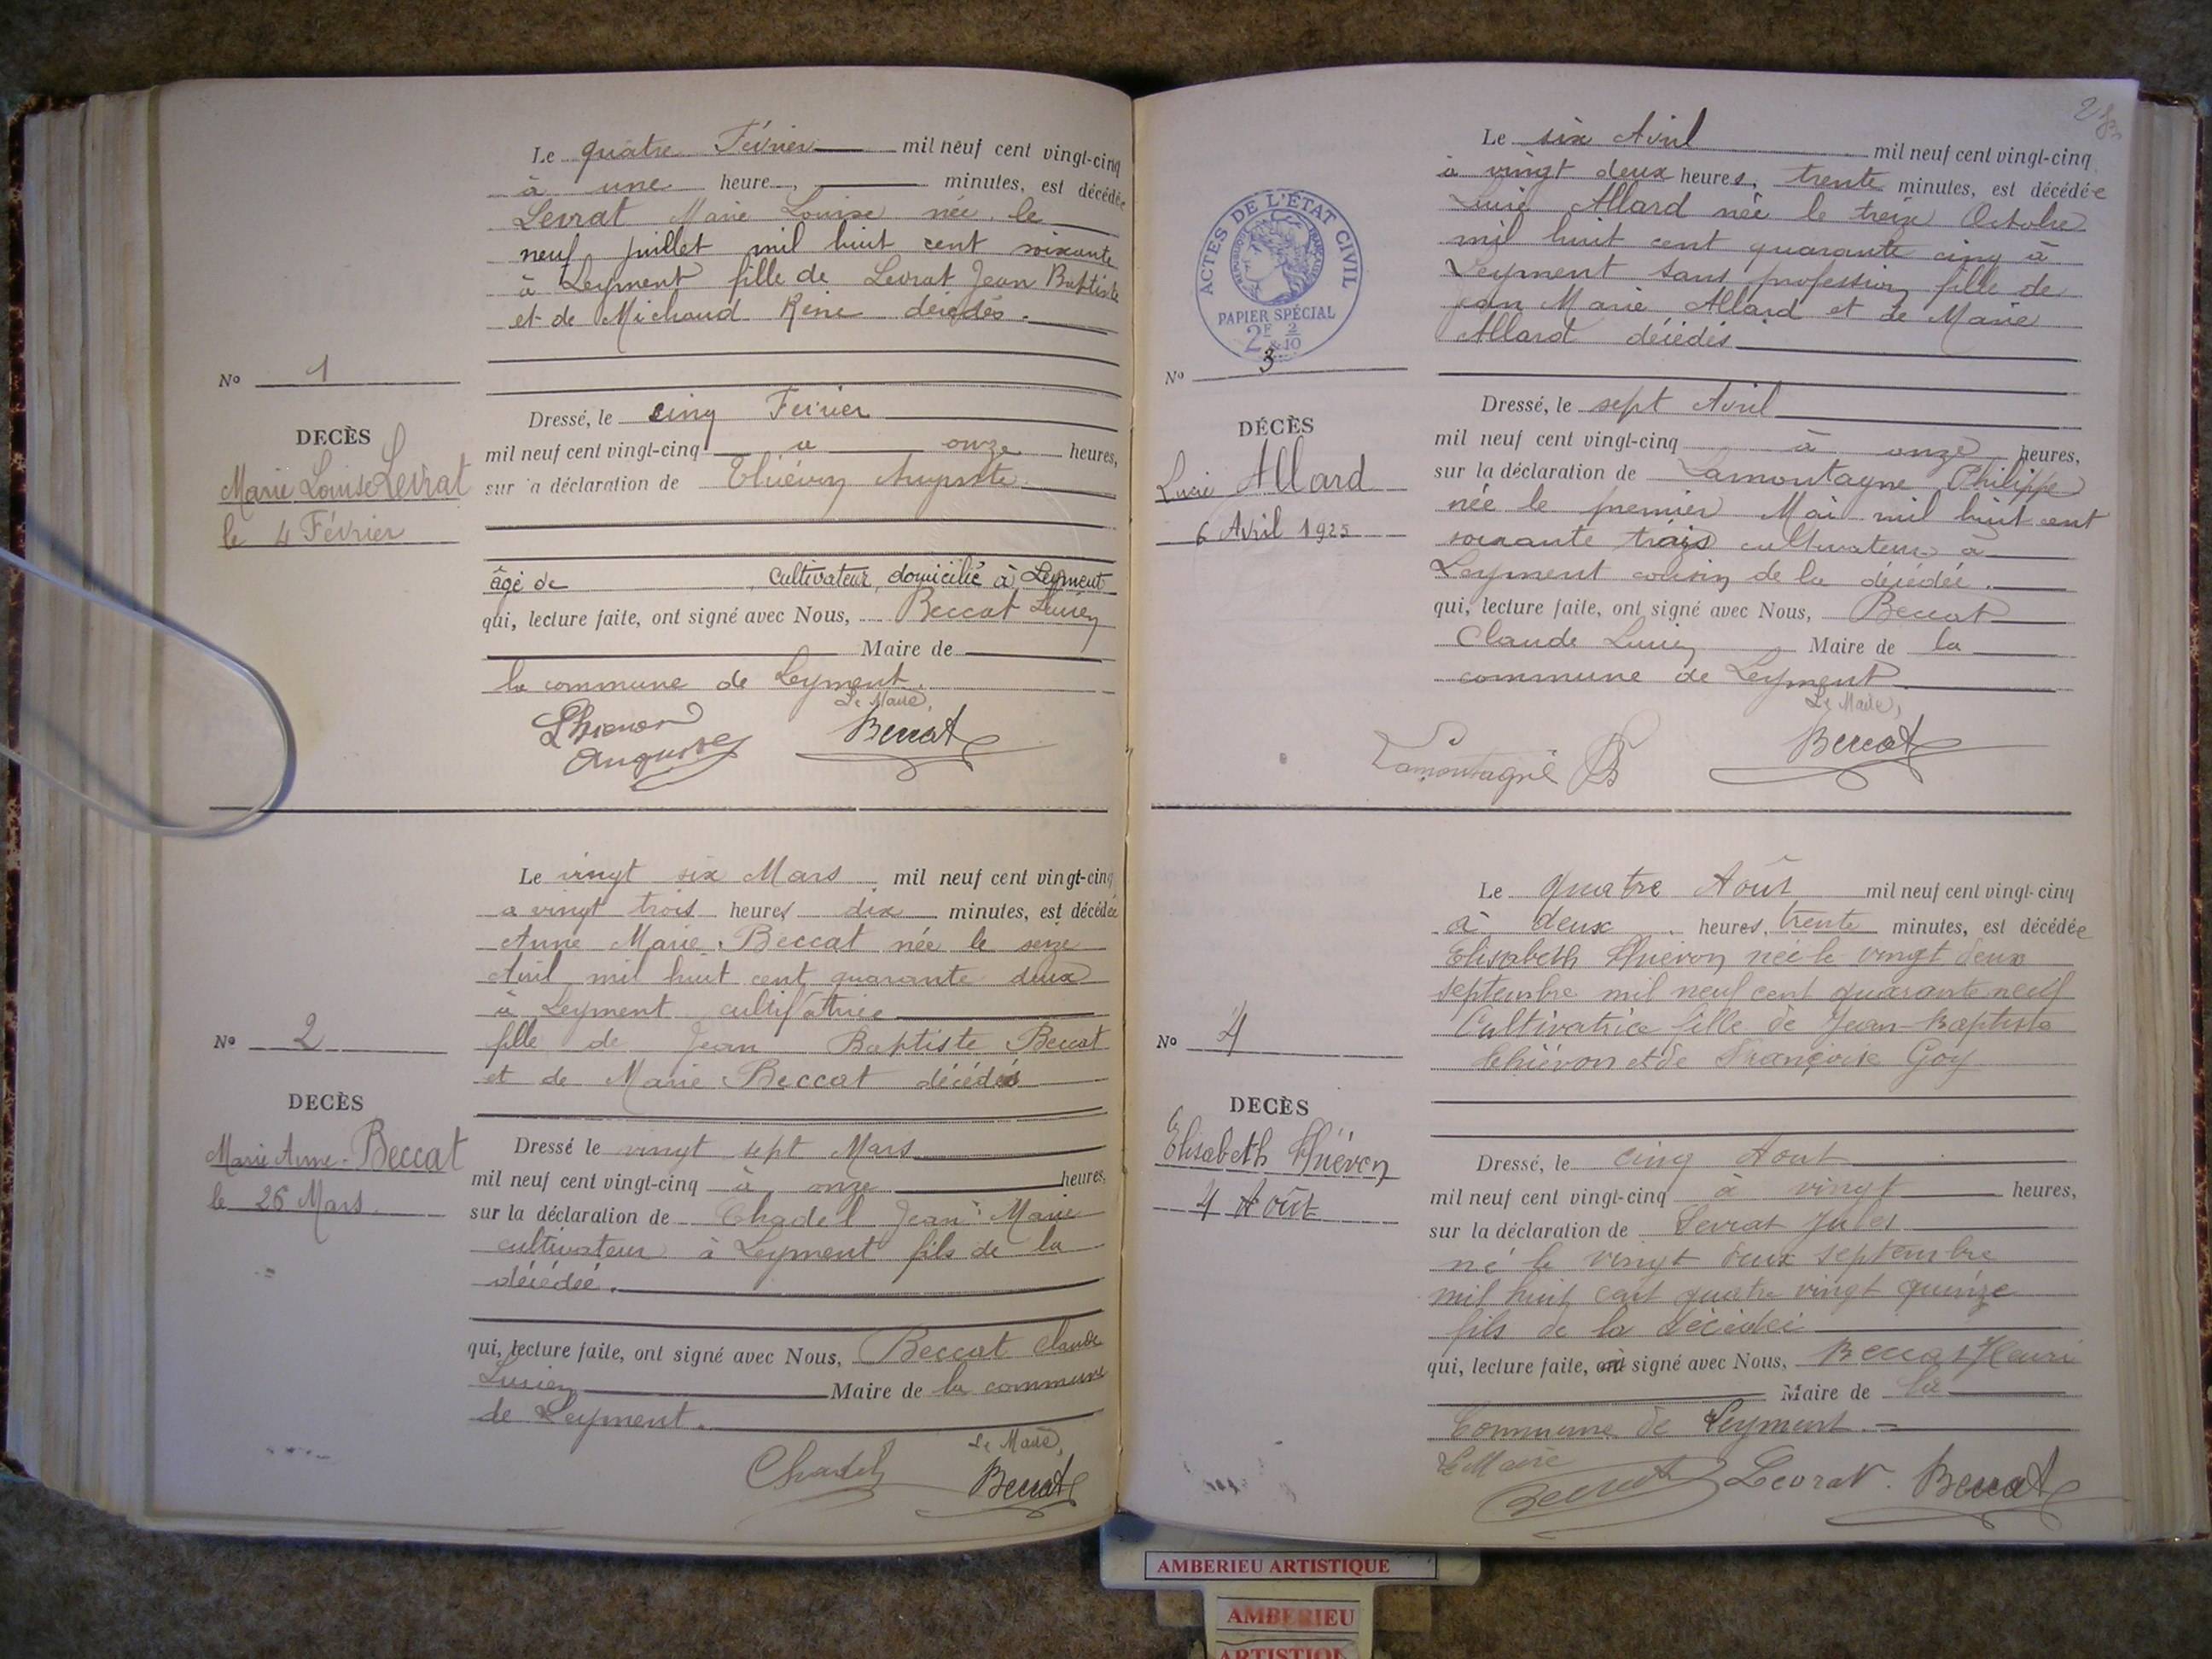 Le quatre Février mil neuf cent vingt-cinq
à une heure, minutes, est décédée
Levrat Marie Louise née le
neuf juillet mil huit cent soixante
à Leyment fille de Levrat Jean Baptiste
et de Michaud Reine décédés.
No 1
DECÈS
Marie Louise Levrat
le 4 Février
Dressé, le cinq Février
mil neuf cent vingt-cinq à onze heures,
sur la déclaration de Thiévon Auguste
âgé de cultivateur, domicilié à Leyment
qui, lecture faite, ont signé avec Nous, Beccat Lucien
Maire de
la commune de Leyment.
Le Maire,
Thievon
Auguste
Beccat
Le vingt six Mars mil neuf cent vingt-cinq
a vingt trois heures dix minutes, est décédée
Anne Marie Beccat née le seize
Avril mil huit cent quarante deux
à Leyment cultivatrice
fille de Jean Baptiste Beccat
et de Marie Beccat décédés
No 2
DECÈS
Marie Anne Beccat
le 26 Mars
Dressé le vingt sept Mars
mil neuf cent vingt-cinq à onze heures,
sur la déclaration de Chadel Jean Marie
cultivateur à Leyment fils de la
décédée.
qui, lecture faite, ont signé avec Nous, Beccat Claude
Lucien Maire de la commune
de Leyment.
Le Maire,
Chadel
Beccat
Le six Avril mil neuf cent vingt-cinq
à vingt deux heures, trente minutes, est décédée
Lucie Allard née le treize Octobre
mil huit cent quarante cinq à
Leyment sans profession fille de
Jean Marie Allard et de Marie
Allard décédés
ACTES DE L'ÉTAT CIVIL
RÉPUBLIQUE FRANÇAISE
PAPIER SPÉCIAL
2F & 2/10
No 3
DÉCÈS
Lucie Allard
6 Avril 1925
Dressé, le sept Avril
mil neuf cent vingt-cinq à onze heures,
sur la déclaration de Lamontagne Philippe
née le premier Mai mil huit cent
soixante trois cultivateur à
Leyment cousin de la décédée.
qui, lecture faite, ont signé avec Nous, Beccat
Claude Lucien Maire de la
commune de Leyment
Le Maire,
Lamontagne
Beccat
Le quatre Août mil neuf cent vingt-cinq
à deux heures, trente minutes, est décédée
Elisabeth Thiévon née le vingt deux
septembre mil neuf cent quarante neuf
Cultivatrice fille de Jean-Baptiste
Thiévon et de Françoise Goy
No 4
DECÈS
Elisabeth Thiévon
4 Août
Dressé, le cinq Aout
mil neuf cent vingt-cinq à vingt heures,
sur la déclaration de Levrat Jules
né le vingt deux septembre
mil huit cent quatre vingt quinze
fils de la décédée
qui, lecture faite, signé avec Nous, Beccat Henri
Maire de la
Commune de Leyment.
Le Maire
Beccat
Levrat.
Beccat
AMBERIEU ARTISTIQUE
AMBERIEU
ARTISTIQUE